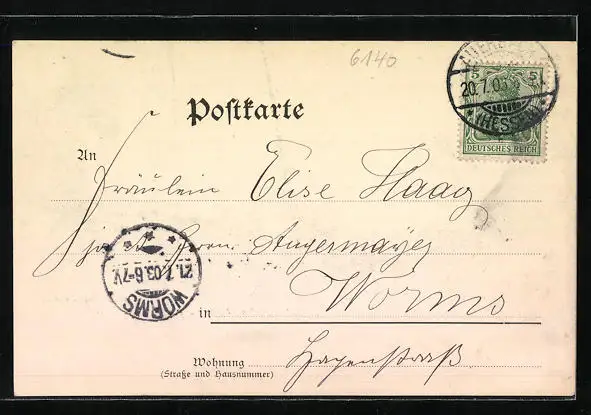 6140
5 5
20.7.03
(HESSEN)
DEUTSCHES REICH
Postkarte
An
Fräulein Elise Haag
Herrn Angermayer
21.7.03.6-7V.
WORMS
Worms
in
Wohnung
Hagenstraß
(Straße und Hausnummer)